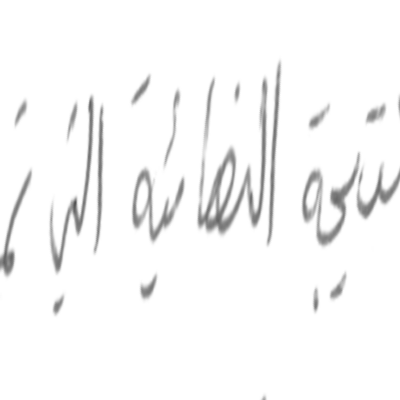 نتيجة النهائية التي